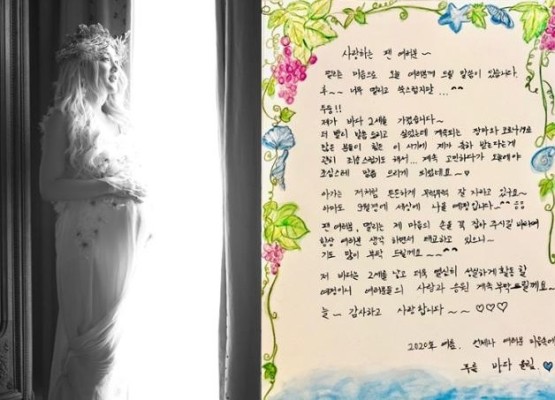 사랑하는 팬 여러분 ~
떨리는 마음으로 오늘 여러분께 드릴 말씀이 있습니다.
후~~ 너무 떨리고 쑥스럽지만 ...^^
제가 바다 2세를 가졌습니다~
더 빨리 말씀 드리고 싶었는데 계속되는 장마와 코로나19로
많은 분들이 힘든 이 시기에 제가 축하 받는다는게
괜히 조심스럽기도 해서... 계속 고민하다가 오늘에야
조심스레 말씀 드리게 되었네요~
아가는 저처럼 튼튼하게 무럭무럭 잘 자라고 있구요~
아마도 9월경에 세상에 나올 예정입니다~^^
팬 여러분, 떨리는 제 마음의 손을 꼭 잡아 주시길 바라며
항상 여러분 생각 하면서 태교하고 있으니~
기도 많이 부탁 드릴게요~~^^
저 바다는 2세를 낳고 더욱 열심히 성실하게 활동 할
예정이니 여러분들의 사랑과 응원 계속 부탁드릴게요~
늘~ 감사하고 사랑합니다~~♡♡♡
2020年 여름. 언제나 여러분 마음속에
바다 올림.